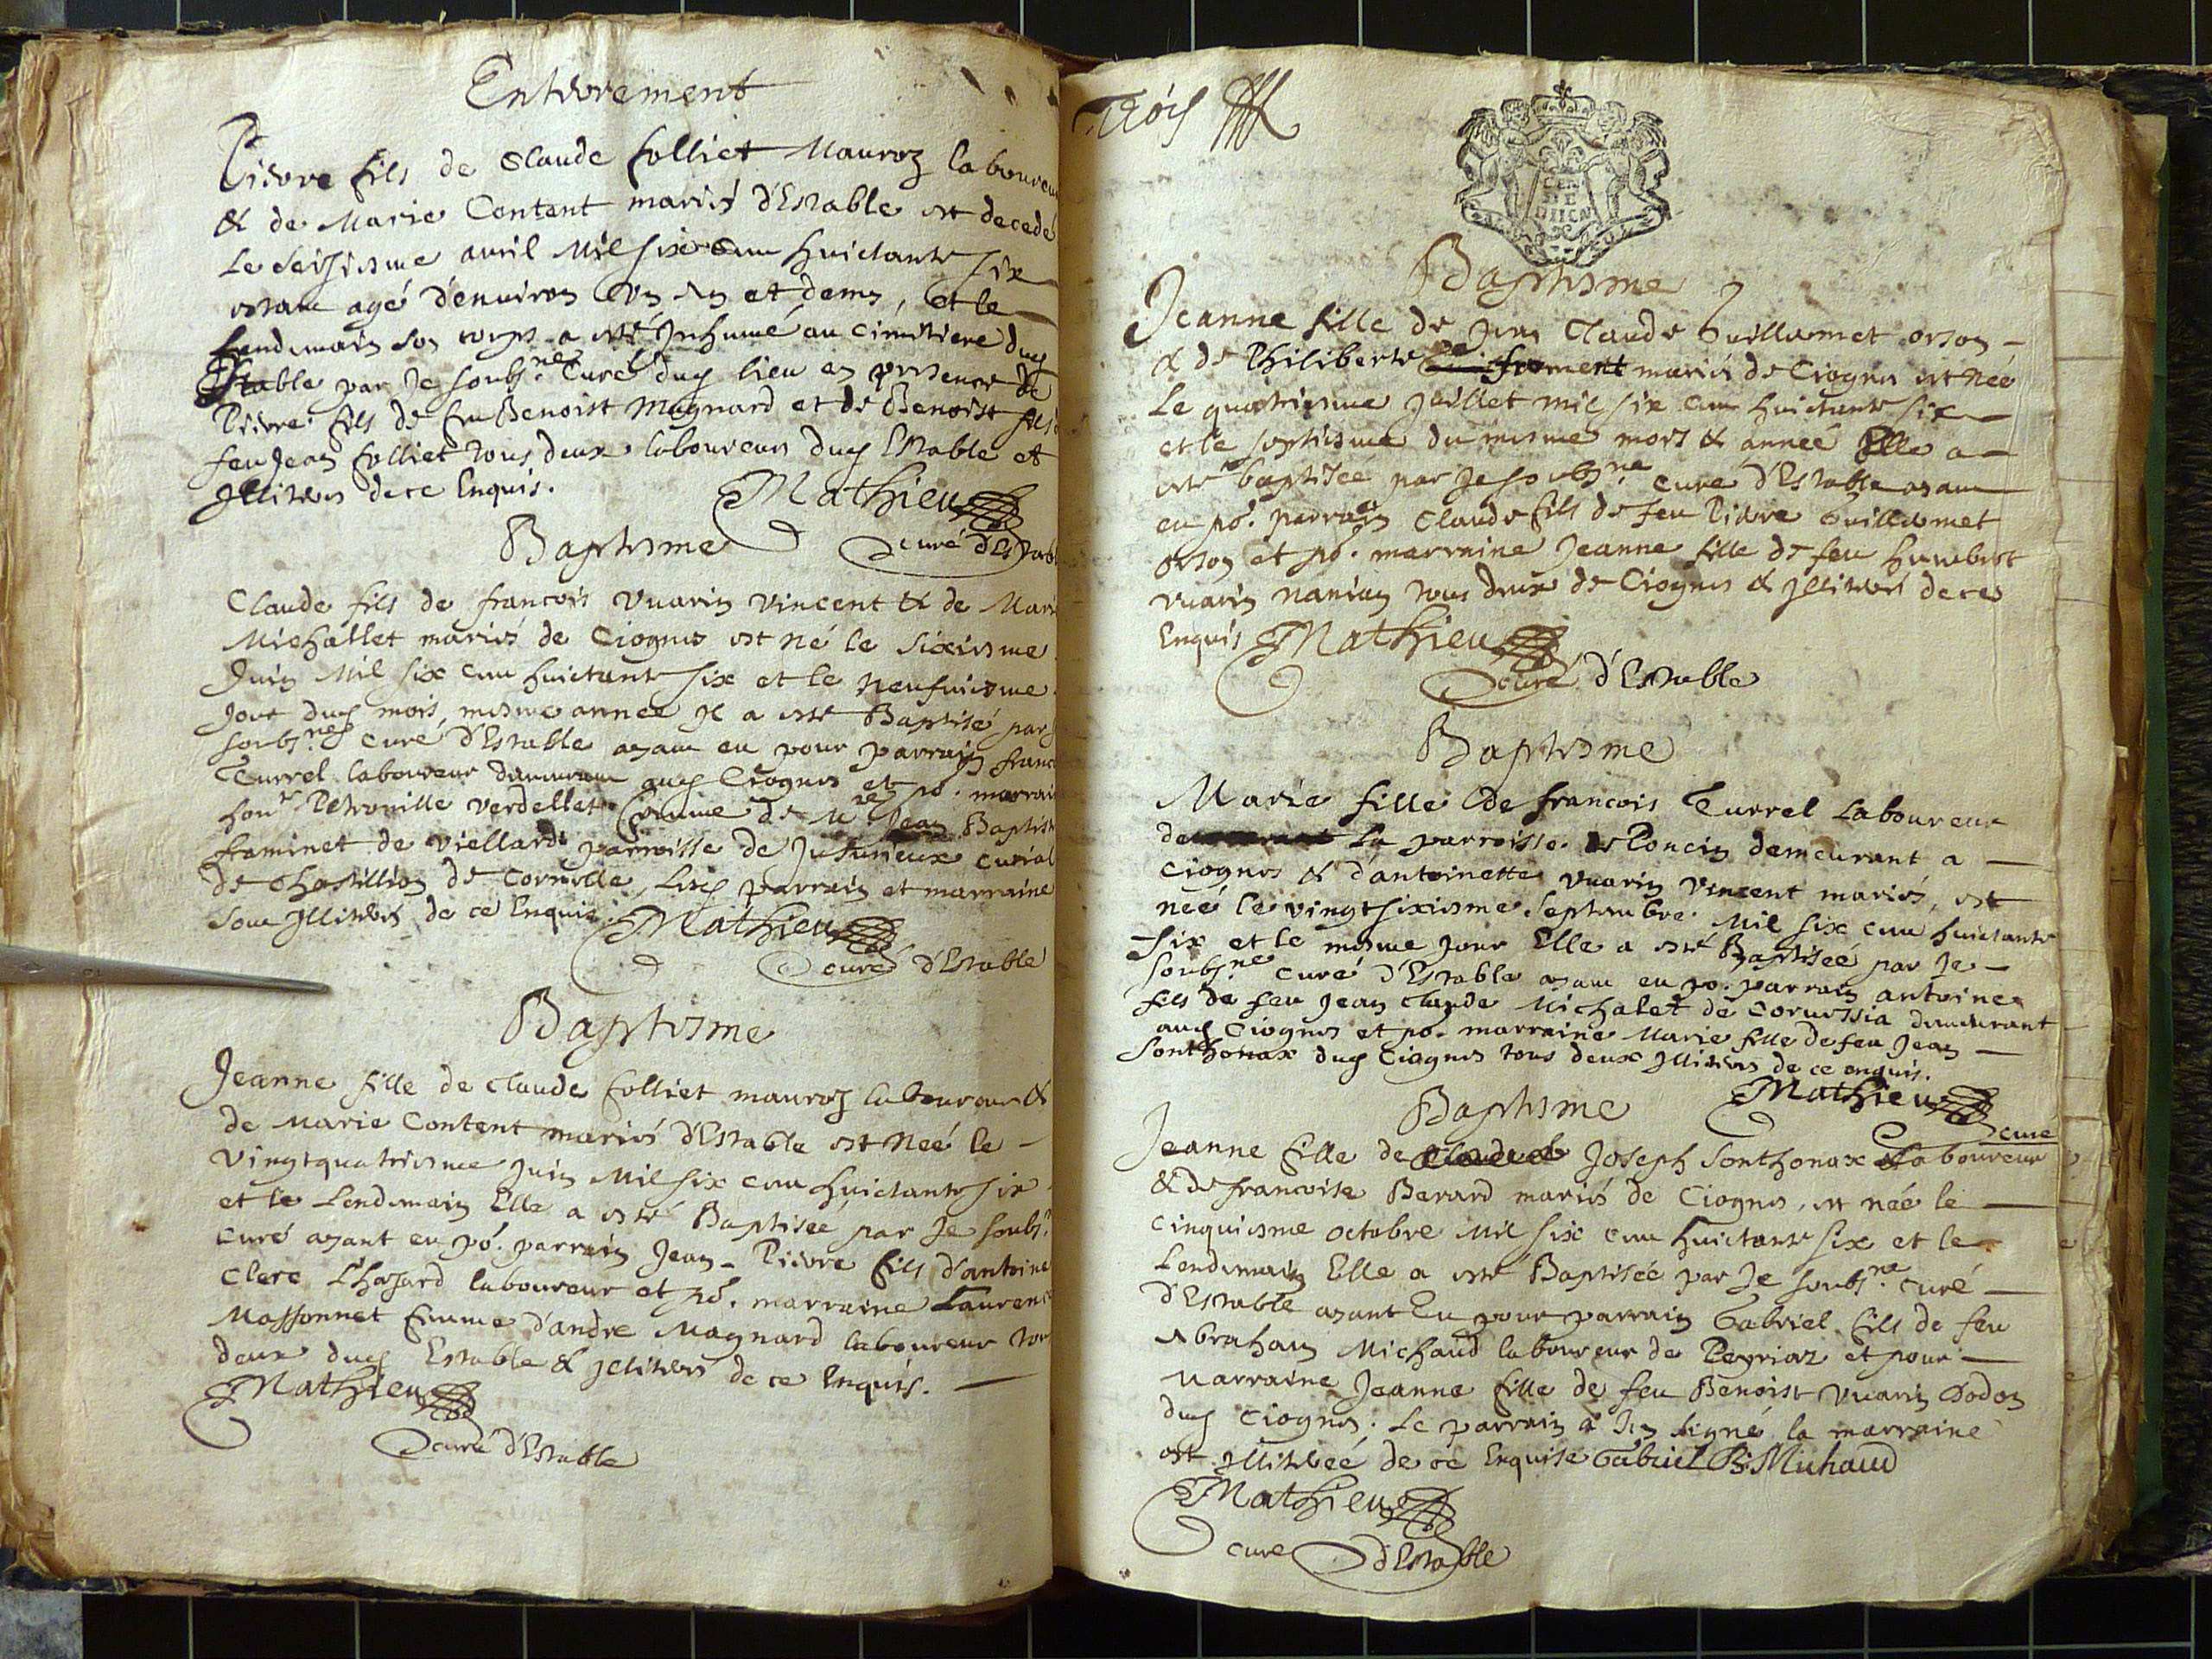 Enterrement
Pierre fils de Claude folliet Mauroz laboureur
& de Marie Content mariés d'Estable est decedé
Le seiziesme auril Mil six Cent huictante six
estant agé d'enuiron Un An et demy, et le
lendemain son corps a esté Inhumé au Cimitiere dud
Estable par Je soubs.né Curé dud lieu en presence de
Pierre fils de feu Benoist Magnard et de Benoist fils d
feu Jean folliet tous deux laboureurs dud Estable et
Illiterés de ce Enquis. Mathieu
curé d'Estable
Baptesme
Claude fils de francois Vuarin Vincent & de Marie
Michallet mariés de Ciognes est né le sixiesme
Juin Mil six cent huictante six et le neufuiesme
Jour dud mois, mesme année Il a esté Baptisé par
soubs.né curé d'Estable ayant eu pour parrain franc
Turrel laboureur demeurant aud Ciognes et po. marrai
hon.e Petronille Verdellet femme de M.re Jean Baptiste
framinet de Viellard parroisse de Jusurieux curial
de Chastillion de Cornelle, Lesd parrain et marraine
sont Illiterés de ce Enquis. Mathieu
curé d'Estable
Baptesme
Jeanne fille de Claude folliet mauroz laboureur &
de Marie Content mariés d'Estable est Neé le
Vingtquatriesme Juin Mil six cent huictante six
et le Lendemain Elle a esté Baptisée par Je soubs.né
Curé ayant eu pó. parrain Jean-Pierre fils d'antoine
Clerc L'hazard laboureur et pó. marraine Laurence
Massonnet femme d'andre Magnard laboureur tou
deux dud Estable & Illiterés de ce Enquis.
Mathieu
curé d'Estable
Trois
CEN
DE
DIICX
Baptesme
Jeanne fille de Jean Claude Guillermet orson
& de Philiberte froment mariés de Ciognes est Neé
Le quatriesme Juillet mil six cent huictante six
et le septiesme du mesme mois & année Elle a
esté baptisée par Je soubs.né curé d'Estable ayant
eu pó. parrain Claude fils de feu Pierre Guillermet
orson et pó. marraine Jeanne fille de feu humbert
Vuarin Nanian tous deux de Ciognes & Illiterés de ce
Enquis Mathieu
curé d'Estable
Baptesme
Marie fille de francois Turrel Laboureur
de La parroisse de Poncin demeurant a
Ciognes & d'antoinette Vuarin Vincent mariés, est
neé le vingtsixiesme Septembre Mil six cent huictante
six et le mesme Jour Elle a esté Baptiseé par Je
soubs.né curé d'Estable ayant eu po. parrain antoine
fils de feu Jean Claude Michalet de Coruessia demeurant
aud Ciognes et po. marraine Marie fille de feu Jean
Sonthonax dud Ciognes tous deux Illiterés de ce enquis.
Mathieu
curé
Baptesme
Jeanne fille de Joseph Sonthonax Laboureur
& de francoise Berard mariés de Ciognes, est née le
Cinquiesme octobre Mil six cent huictante six et le
Lendemain Elle a esté Baptisée par Je soubs.né curé
d'Estable ayant Eu pour parrain Gabriel fils de feu
Abraham Michaud laboureur de Peyriaz et pour
Marraine Jeanne fille de feu Benoist Vuarin Dodon
dud Ciognes; Le parrain a Icy signé la marraine
est Illiteréé de ce Enquise Gabriel Michaud
Mathieu
curé d'Estable